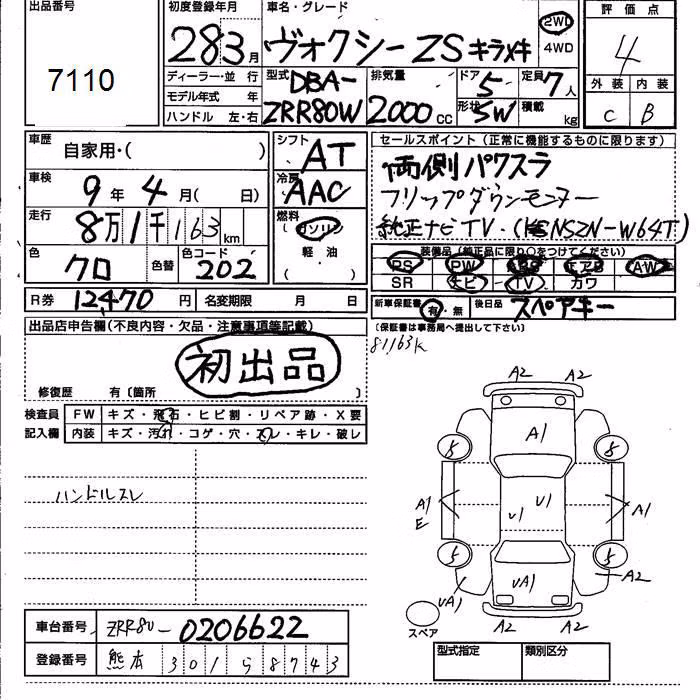 出品番号 初度登録年月 車名・グレード 評価点
7110 28 3月 ヴォクシー ZS キラメキ 2WD 4WD 4
ディーラー・並 行 型式 DBA- 排気量 ドア 5 定員 7人 外装 内装
モデル年式 年
ハンドル 左・右 ZRR80W 2000cc 形状 SW 積載 kg C B
車歴 自家用・( ) シフト AT セールスポイント(正常に機能するものに限ります)
両側パワスラ
車検 9年 4月( 日) 冷房 AAC フリップダウンモニター
走行 8万1千163km 燃料 ガソリン 軽・油 ( ) 純正ナビTV・(NSZN-W64T)
色 クロ 色替 色コード 202 装備品(純正品に限り○をつけてください)
PS PW ABS エアB AW
SR ナビ TV カワ
R券 12,470円 名変期限 月 日 新車保証書 有・無 後日品 スペアキー
(保証書は事務局へ提出して下さい)
出品店申告欄(不良内容・欠品・注意事項等記載) 81,163K
初出品
修復歴 有〔箇所 〕
検査員 FW キズ・飛石・ヒビ割・リペア跡・X要
記入欄 内装 キズ・汚れ・コゲ・穴・スレ・キレ・破レ
ハンドルスレ
A2 A2
A1
5 5
A1 E U1 U1 A1
5 5
UA1 UA1 A2
A2 A2
スペア
車台番号 ZRR80-0206622
登録番号 熊本 301 ら 8743
型式指定 類別区分